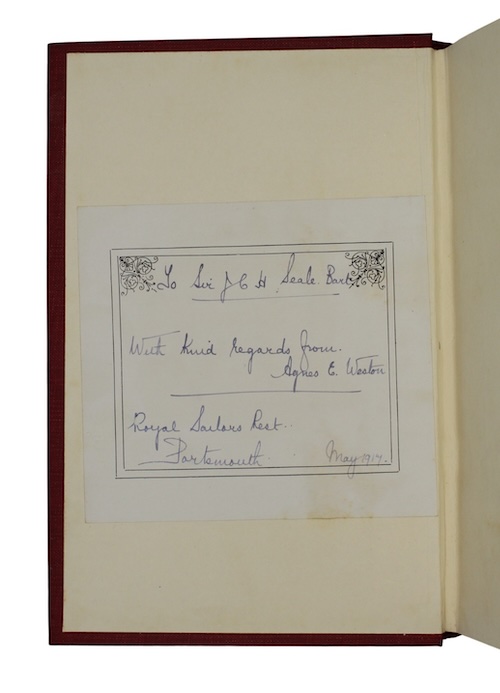 To Sir J C H Seale Bart
With Kind regards from.
Agnes E. Weston
Royal Sailors Rest.
Portsmouth.
May 1917.